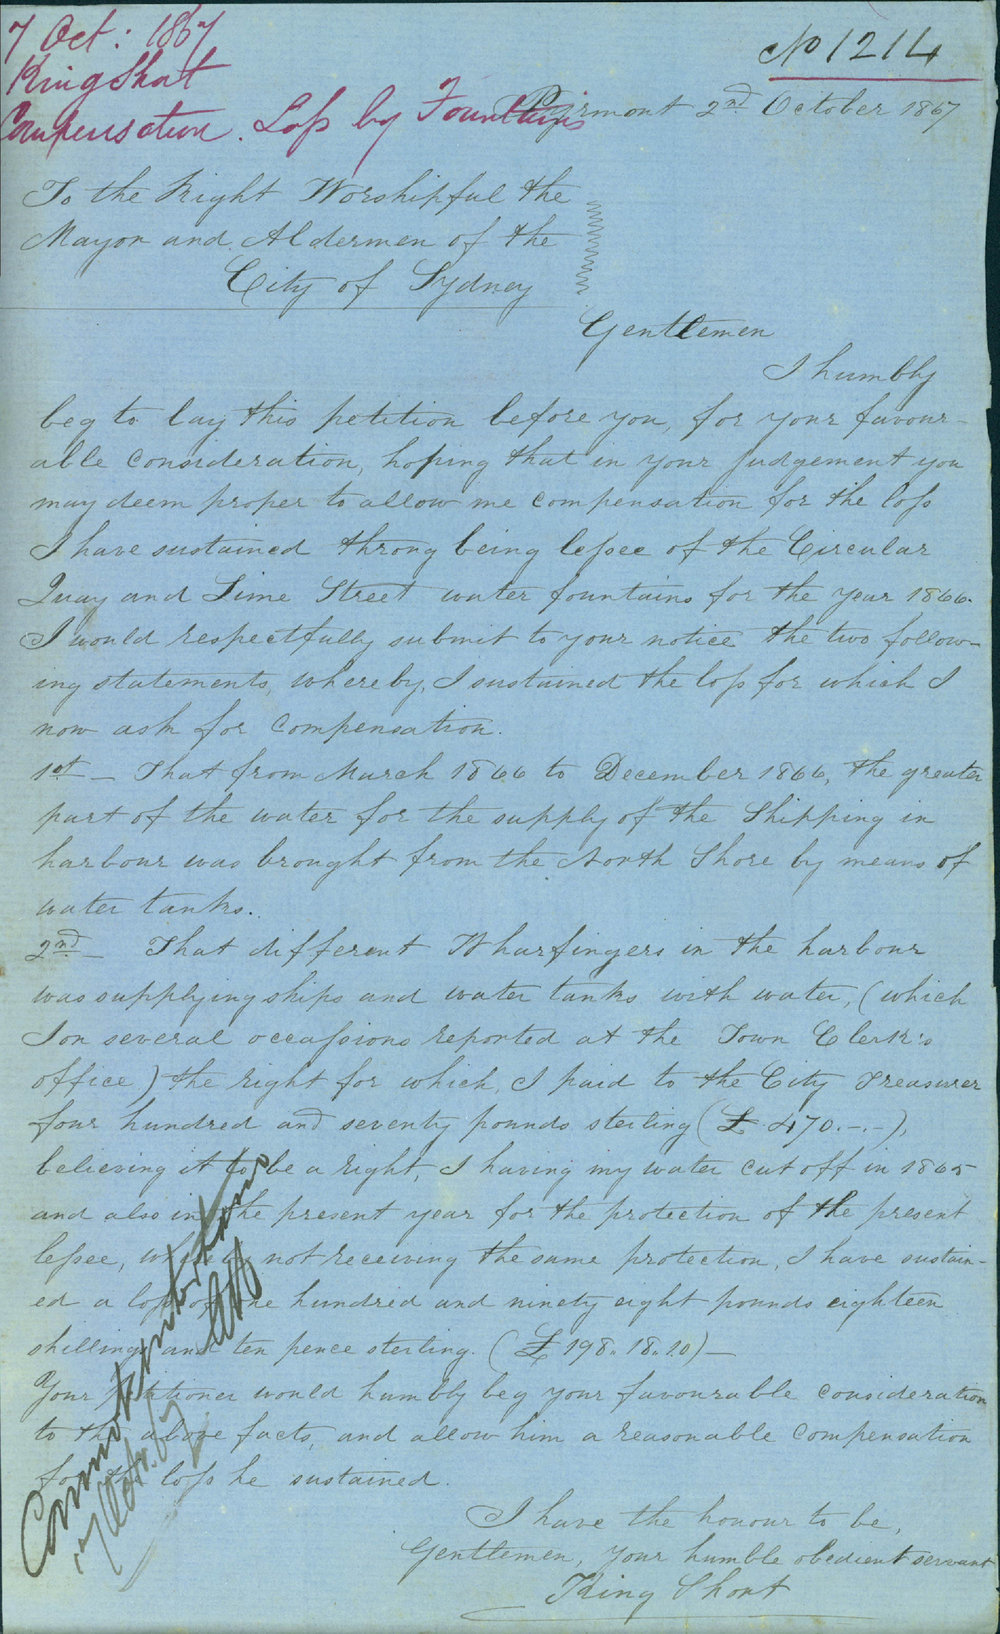 7 Oct: 1867
King Short
Compensation. Loss by Fountains
No 1214
Pyrmont 2nd October 1867
To the Right Worshipful the
Mayor and Aldermen of the
City of Sydney
Gentlemen
I humbly
beg to lay this petition before you, for your favour-
able consideration, hoping that in your judgement you
may deem proper to allow me compensation for the loss
I have sustained throug being lessee of the Circular
Quay and Lime Street water fountains for the year 1866.
I would respectfully submit to your notice the two follow-
ing statements, whereby, I sustained the loss for which I
now ask for compensation.
1st - That from March 1866 to December 1866, the greater
part of the water for the supply of the Shipping in
harbour was brought from the North Shore by means of
water tanks.
2nd - That different Wharfingers in the harbour
was supplying ships and water tanks with water, (which
I on several occassions reported at the Town Clerk's
office) the right for which, I paid to the City Treasurer
four hundred and seventy pounds sterling (£ 470.-.-),
believing it to be a right, I having my water cut off in 1865
and also in the present year for the protection of the present
lessee, not receiving the same protection, I have sustain-
ed a loss of one hundred and ninety eight pounds eighteen
shillings and ten pence sterling. (£ 198.. 18.. 10) -
Your Petitioner would humbly beg your favourable consideration
to the above facts, and allow him a reasonable compensation
for the loss he sustained.
I have the honour to be,
Gentlemen, your humble obedient servant
King Short
7 Octr. 67